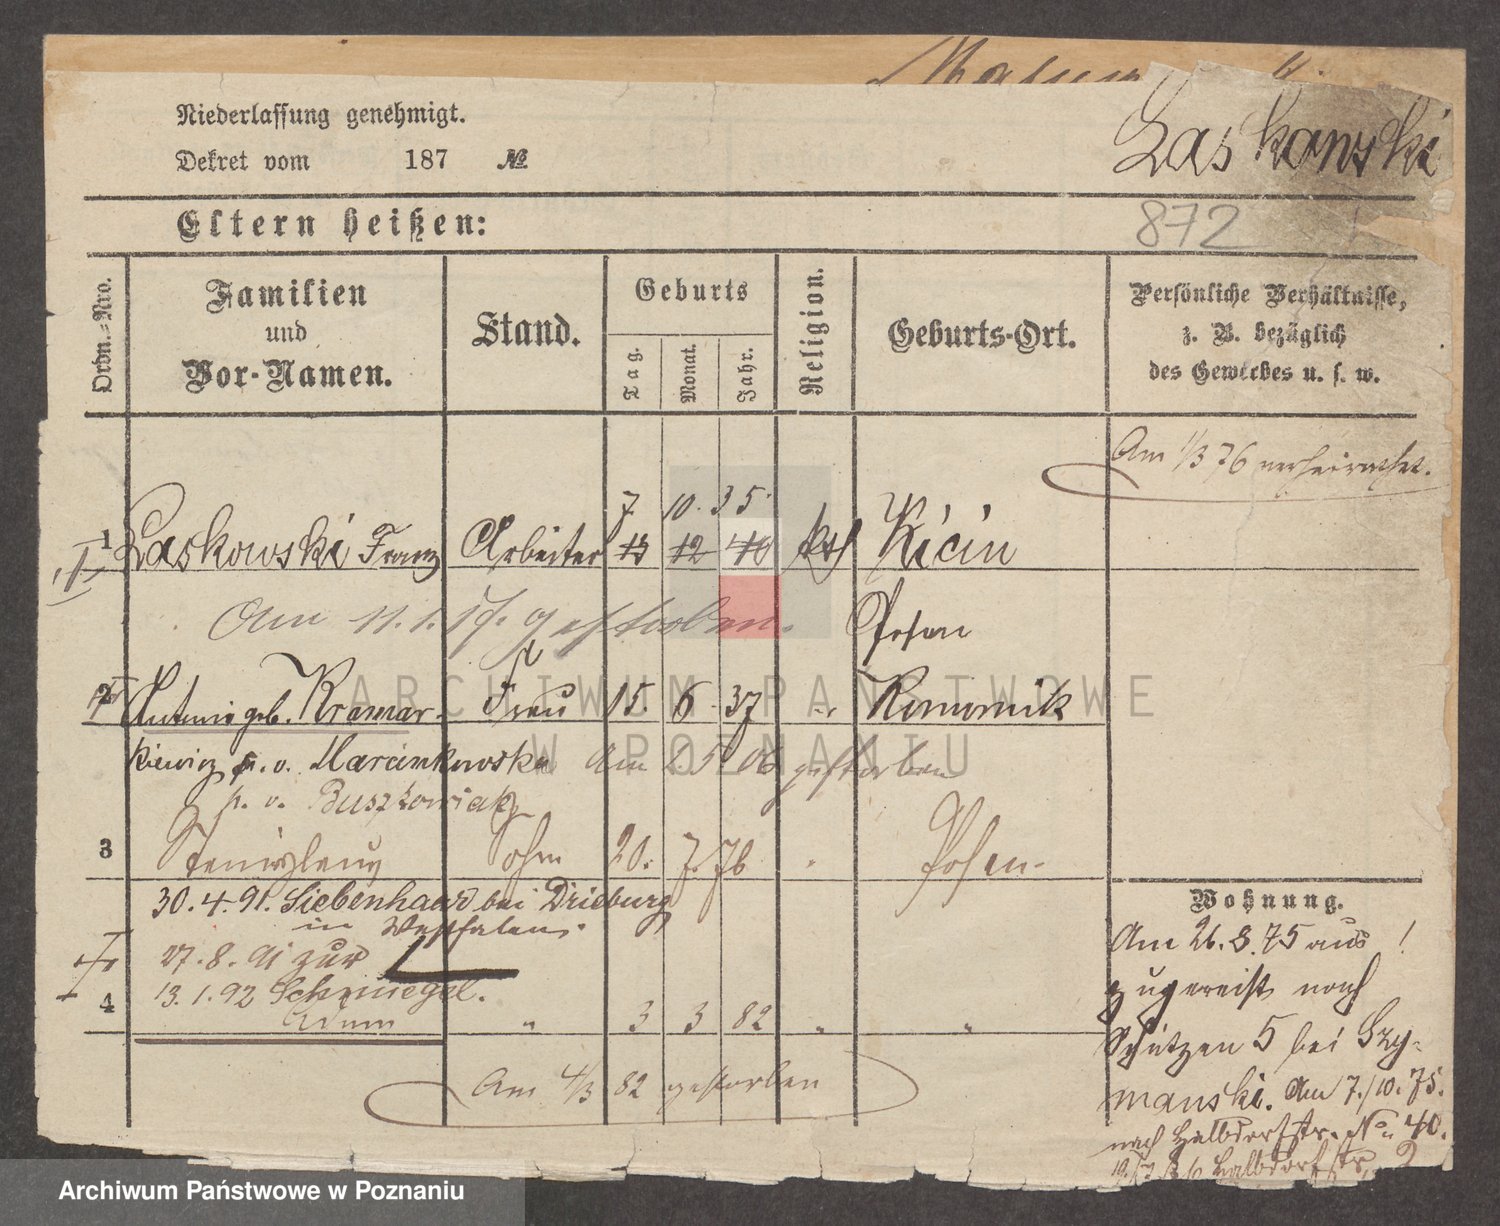 Niederlassung genehmigt.
Dekret vom 187 №
Laskowski
872
Eltern heißen:
Ordn.-Nro.
Familien
und
Vor-Namen.
Stand.
Geburts
Tag.
Monat.
Jahr.
Religion.
Geburts-Ort.
Persönliche Verhältnisse,
z. B. bezüglich
des Gewerbes u. s. w.
Am 1/3 76 verheirathet.
7 10. 35.
1 Laskowski Franz Arbeiter 13 12 40 kth Kicin
Am 11.1. gestorben. Posen
2 Antonie geb. Kramar- Frau 15. 6. 37 Komornik
kiewicz p. v. Marcinkowska Am 2 5 06 gestorben
p. v. Buszkowiak
3 Sohn 20. 7. 76 Posen.
30.4.91. Siebenhard bei Drieburg
in Westfalen.
27.8.91 zur
13.1.92 Schmiegel.
4 Adam " 3 3 82 " "
Am 4/3 82 gestorben
Wohnung.
Am 26.8.75 aus !
zugereist nach
Schützen 5 bei Szy-
manski. Am 7./10.75.
nach Halbdorfstr. No 40.
Halbdorfstr. 2
ARCHIWUM PAŃSTWOWE
W POZNANIU
Archiwum Państwowe w Poznaniu